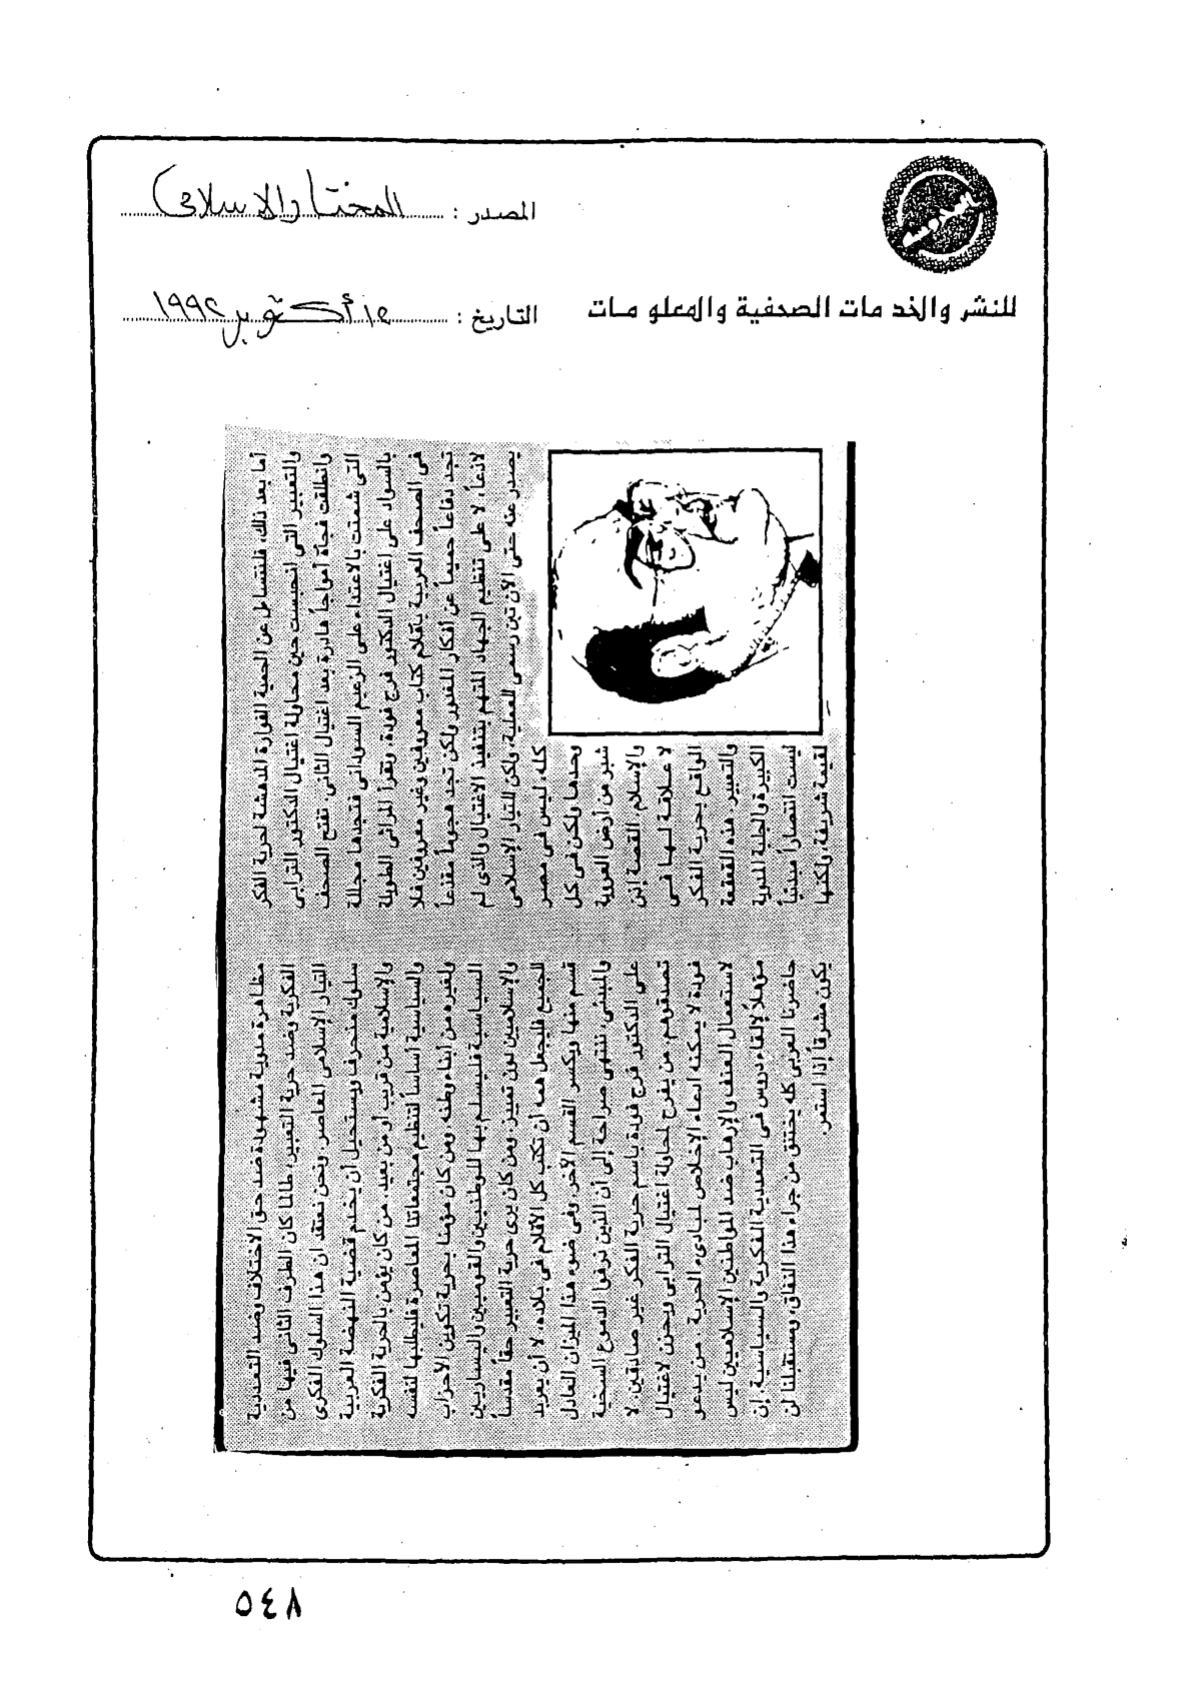 المصدر : المختار الإسلامى
للنشر والخدمات الصحفية والمعلومات
التاريخ : ١٥ أكتوبر ١٩٩٢
أما بعد ذلك، فلنتساءل عن الحمية الفوارة المدهشة لحرية الفكر
والتعبير التى انحبست حين محاولة اغتيال الدكتور الترابى
وانطلقت فجأة أمواجاً هادرة بعد اغتيال الثانى. تفتح الصحف
التى شمتت بالاعتداء على الزعيم السودانى فتجدها مجللة
بالسواد على اغتيال الدكتور فرج فودة، وتقرأ المراثى الطويلة
فى الصحف العربية بأقلام كتاب معروفين وغير معروفين فلا
تجد دفاعاً حميماً عن أفكار المغدور ولكن تجد هجوماً مقذعاً
لاذعاً، لا على تنظيم الجهاد المتهم بتنفيذ الاغتيال والذى لم
يصدر عنه حتى الآن تبن رسمى للعملية، ولكن للتيار الإسلامى
كله، ليس فى مصر
وحدها ولكن فى كل
شبر من أرض العروبة
والإسلام. القصة إذن
لا علاقة لها فى
الواقع بحرية الفكر
والتعبير. هذه القعقعة
الكبيرة والجلبة المدوية
ليست انتصاراً مبدئياً
لقيمة شريفة، ولكنها
مظاهرة مدوية مشهودة ضد حق الاختلاف وضد التعددية
الفكرية وضد حرية التعبير، طالما كان الطرف الثانى فيها من
التيار الإسلامى المعاصر. ونحن نعتقد ان هذا السلوك الفكرى
سلوك منحرف ويستحيل أن يخدم قضية النهضة العربية
والإسلامية من قريب أو من بعيد. من كان يؤمن بالحرية الفكرية
والسياسية أساساً لتنظيم مجتمعاتنا المعاصرة فليطلبها لنفسه
ولغيره من أبناء وطنه. ومن كان مؤمنا بحرية تكوين الأحزاب
السياسية فليسلم بها للوطنيين والقوميين واليساريين
والإسلاميين دون تمييز. ومن كان يرى حرية التعبير حقاً مقدساً
للجميع فليجعل همه أن تكتب كل الأقلام فى بلاده، لا أن يعربد
قسم منها ويكسر القسم الآخر. وفى ضوء هذا الميزان العادل
والمبدئى، ننتهى صراحة إلى أن الذين ذرفوا الدموع السخية
على الدكتور فرج فودة باسم حرية الفكر غير صادقين. لا
تصدقوهم. من يفرح لمحاولة اغتيال الترابى ويحزن لاغتيال
فودة لا يمكنه ادعاء الإخلاص لمبادىء الحرية. من يدعو
لاستعمال العنف والإرهاب ضد المواطنين الإسلاميين ليس
مؤهلاً لإلقاء دروس فى التعددية الفكرية والسياسية. إن
حاضرنا العربى كله يختنق من جراء هذا النفاق، ومستقبلنا لن
يكون مشرقاً إذا استمر.
٧٤٥